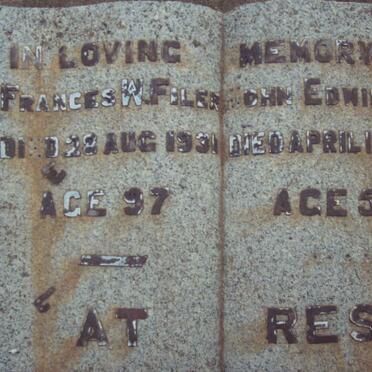 IN LOVING MEMORY
FRANCES W. FILER JOHN EDWI
DIED 28 AUG 1931 DIED APRIL 1
AGE 97 AGE 5
AT RES